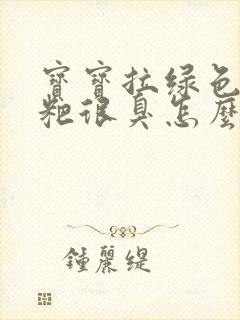 寶寶拉綠色
粑很臭怎麼
鍾麗緹